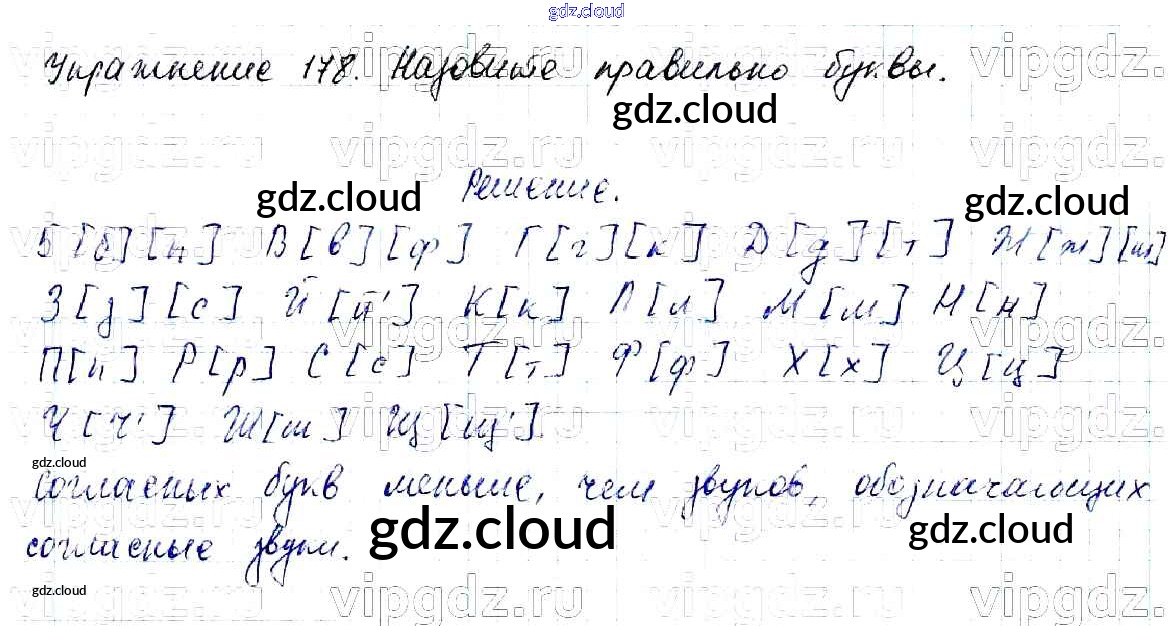 gdz.cloud
Упражнение 178. Назовите правильно буквы.
gdz.cloud
vipgdz.ru vipgdz.ru
Решение.
gdz.cloud gdz.cloud
Б [б] [п] В [в] [ф] Г [г] [к] Д [д] [т] Ж [ж] [ш]
З [з] [с] Й [й'] К [к] Л [л] М [м] Н [н]
П [п] Р [р] С [с] Т [т] Ф [ф] Х [х] Ц [ц]
Ч [ч'] Ш [ш] Щ [щ'].
gdz.cloud
Согласных букв меньше, чем звуков, обозначающих
gdz.cloud gdz.cloud
согласные звуки.
gdz.cloud
vipgdz.ru vipgdz.ru